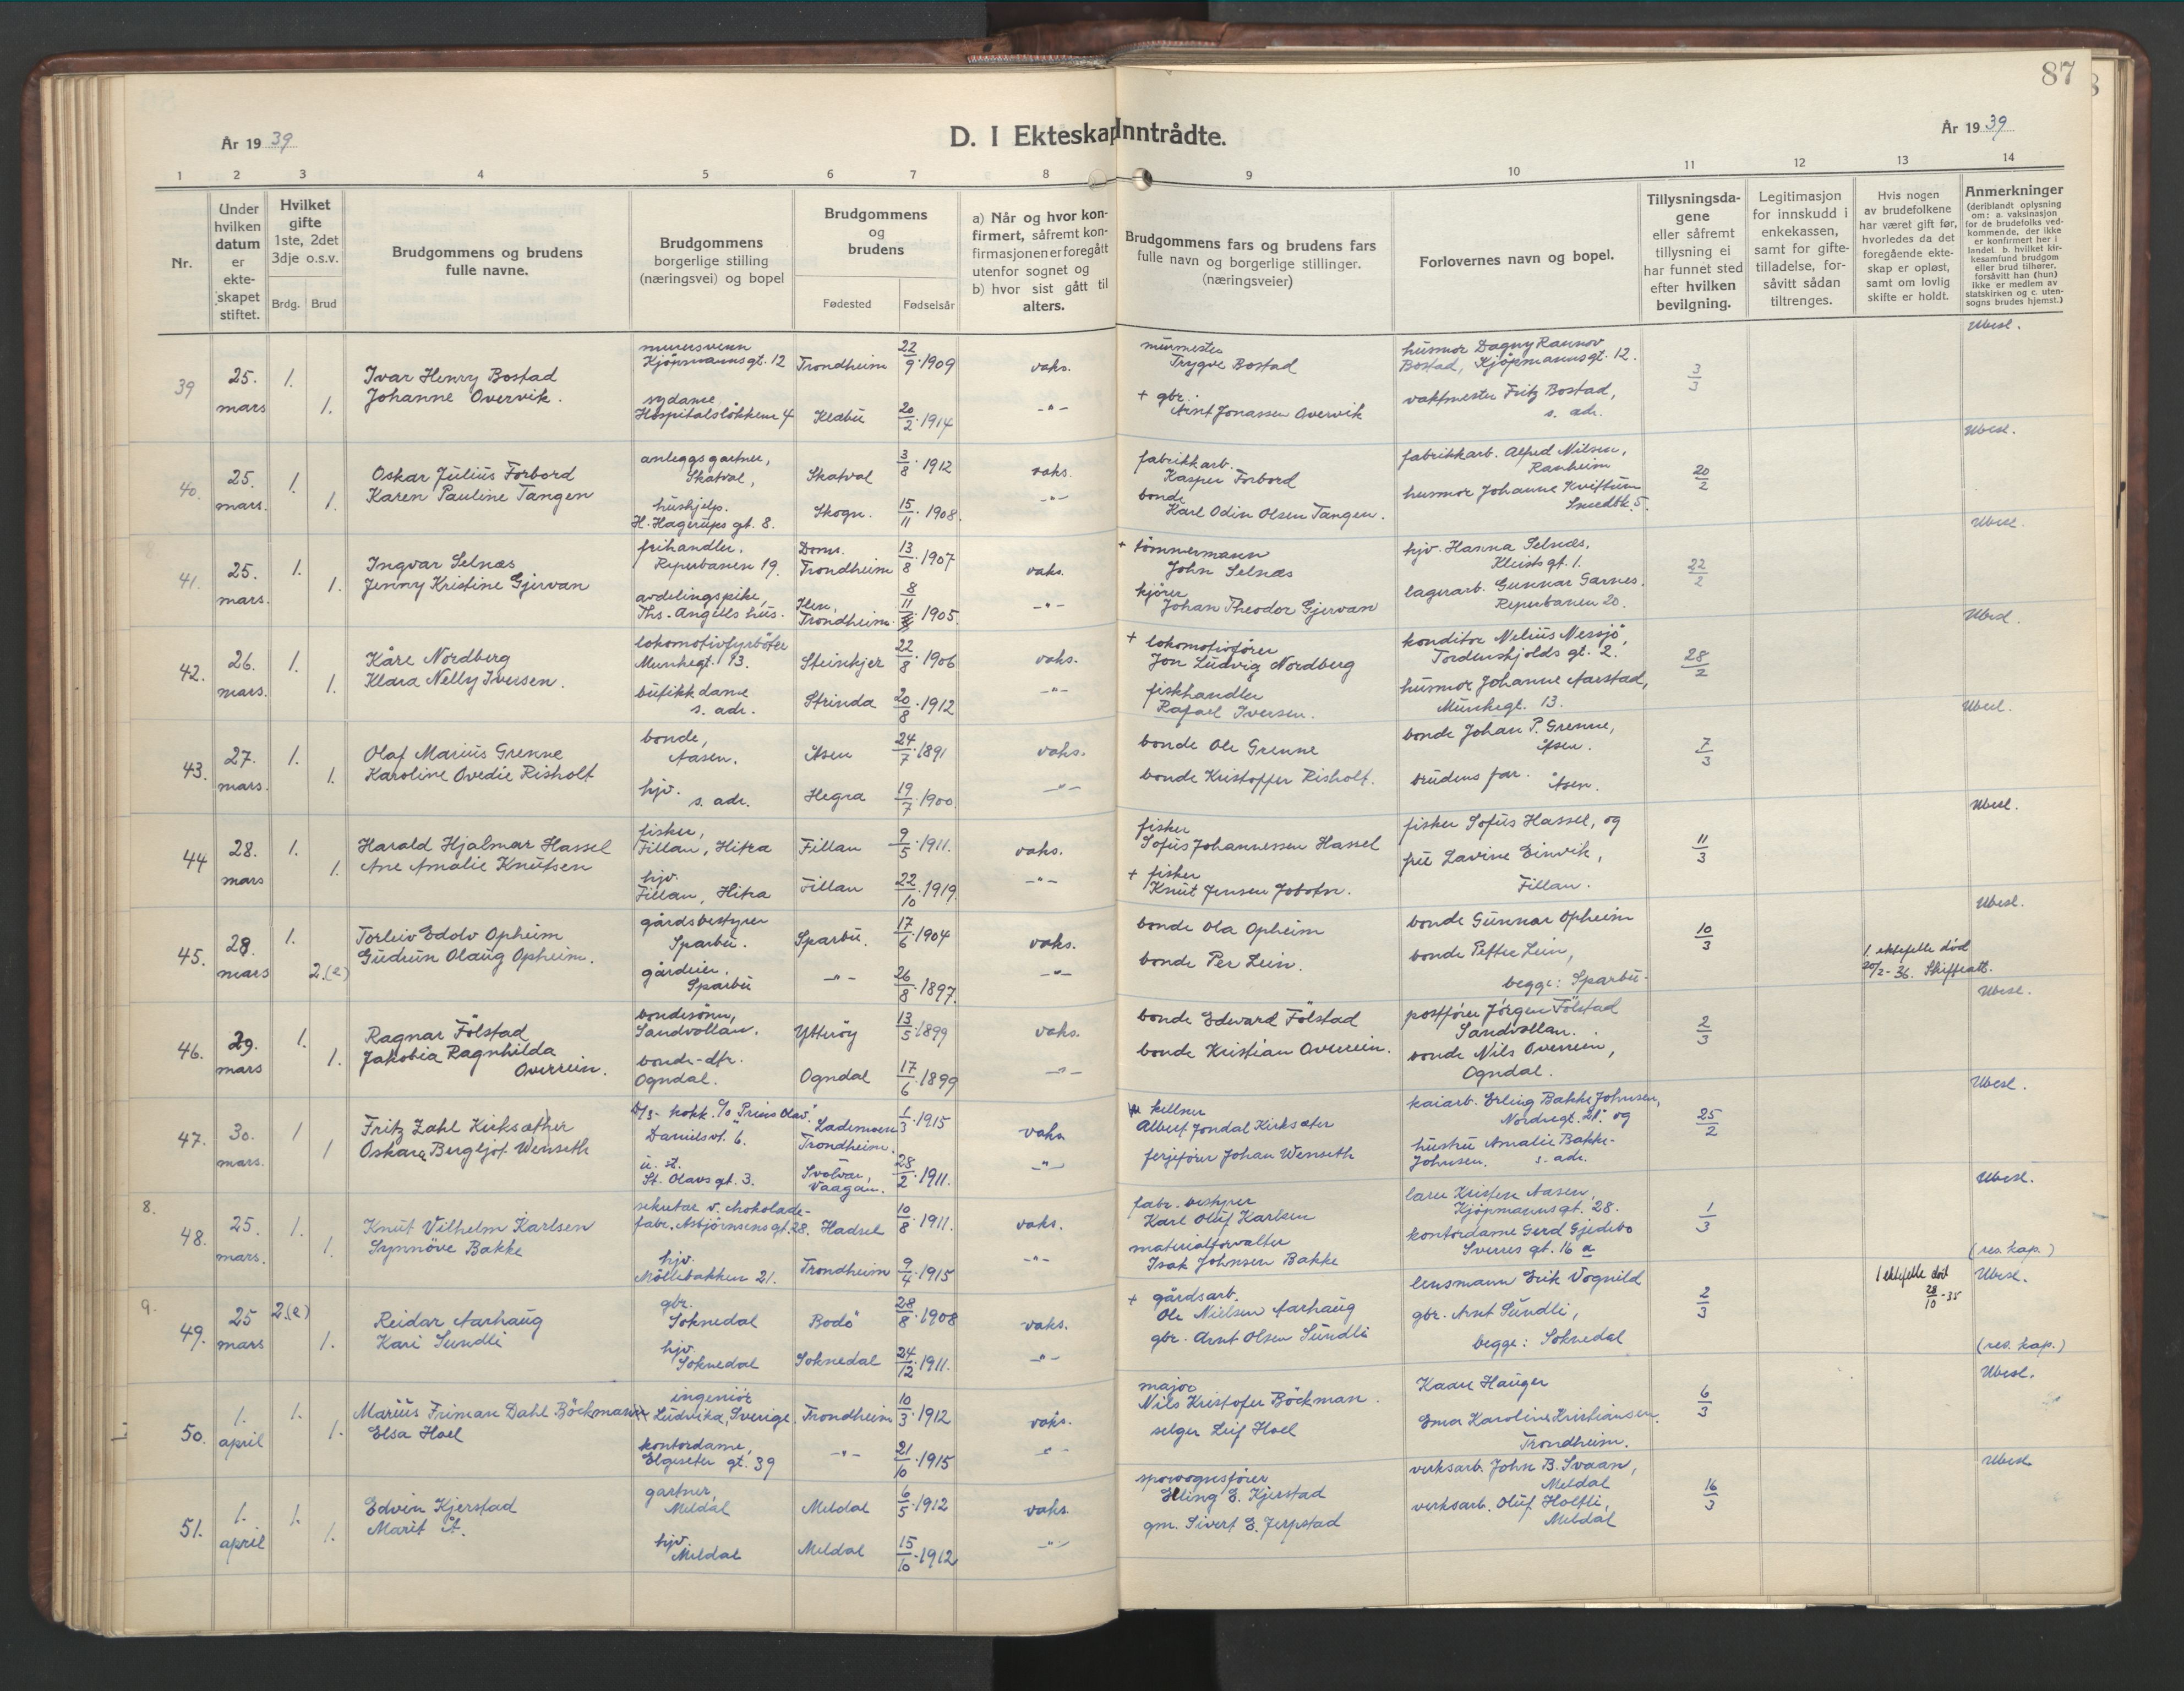 87
År 1939
D. I Ekteskap Inntrådte.
År 1939
1 2 3 4 5 6 7 8 9 10 11 12 13 14
Nr.
Under hvilken datum er ekteskapet stiftet.
Hvilket gifte 1ste, 2det 3dje o.s.v.
Brdg. Brud
Brudgommens og brudens fulle navne.
Brudgommens borgerlige stilling (næringsvei) og bopel
Brudgommens og brudens
Fødested Fødselsår
a) Når og hvor konfirmert, såfremt konfirmasjonen er foregått utenfor sognet og b) hvor sist gått til alters.
Brudgommens fars og brudens fars fulle navn og borgerlige stillinger. (næringsveier)
Forlovernes navn og bopel.
Tillysningsdagene eller såfremt tillysning ei har funnet sted efter hvilken bevilgning.
Legitimasjon for innskudd i enkekassen, samt for giftetilladelse, forsåvitt sådan tiltrenges.
Hvis nogen av brudefolkene har været gift før, hvorledes da det foregående ekteskap er opløst, samt om lovlig skifte er holdt.
Anmerkninger (deriblandt oplysning om: a. vaksinasjon for de brudefolks vedkommende, der ikke er konfirmert her i landet b. hvilket kirkesamfund brudgom eller brud tilhører, forsåvitt han (hun) ikke er medlem av statskirken og c. utensogns brudes hjemst.)
39 25. mars 1. Ivar Henry Bostad murersvenn Kjöpmannsgt. 12 Trondheim 22/9-1909 vaks. murmester Trygve Bostad husmor Dagny Rannov Bostad, Kjöpmannsgt. 12. 3/3 Ubesl.
1. Johanne Overvik. sydame, Hospitalslökkene 4 Klæbu 20/2-1914 -"- + gbr. Arnt Jonassen Overvik vaktmester Fritz Bostad, s. adr.
40. 25. mars. 1. Oskar Julius Forbord anleggsgartner, Skatval, Skatval 3/8-1912 vaks. fabrikkarb. Kasper Forbord fabrikkarb. Alfred Nilsen, Ranheim 20/2 Ubesl.
1. Karen Pauline Tangen hushjelp. H. Hagerups gt. 8. Skogn. 15/11-1908. -"- bonde Karl Odin Olsen Tangen. husmor Johanne Kvistum Smedbk. 5.
41. 25. mars. 1. Ingvar Selnæs frihandler, Reperbanen 19. Doms. Trondheim 13/8-1907 vaks. + tömmermann John Selnæs hjv. Hanna Selnæs, Kleists gt. 1. 22/2 Ubesl.
1. Jenny Kristine Gjervan avdelingspike, Ths. Angells hus. Ilen, Trondheim. 8/11-1905. -"- kjører Johan Theodor Gjervan lagerarb. Gunnar Garnes. Reperbanen 20.
42. 26. mars. 1. Kåre Nordberg lokomotivfyrböter Munkegt. 13. Steinkjer 22/8-1906 vaks. + lokomotivfører Jon Ludvig Nordberg konditor Nelius Nessjö, Tordenskjolds gt. 2. 28/2 Ubesl.
1. Klara Nelly Iversen. butikkdame s. adr. Strinda 20/8-1912 -"- fiskhandler Rafael Iversen. husmor Johanne Aarstad, Munkegt. 13.
43. 27. mars. 1. Olaf Marius Grenne bonde, Aasen. Åsen 24/7-1891 vaks. bonde Ole Grenne bonde Johan P. Grenne, Åsen. 7/3 Ubesl.
1. Karoline Ovedie Risholt hjv. s. adr. Hegra 19/7-1900 -"- bonde Kristoffer Risholt. brudens far. Åsen.
44 28. mars 1. Harald Hjalmar Hassel fisker, Fillan, Hitra Fillan 9/5-1911. vaks. fisker Sofus Johannessen Hassel fisker Sofus Hassel, og 11/3 Ubesl.
1. Ane Amalie Knutsen hjv. Fillan, Hitra Fillan 22/10-1919. -"- + fisker Knut Jensen fru Lavine Einvik, Fillan.
45. 28. mars 1. Torleiv Edolv Opheim gårdsbestyrer Sparbu. Sparbu. 17/6-1904 vaks. bonde Ola Opheim bonde Gunnar Opheim 10/3 1. ektefelle död 20/2-36. Skifteatt. Ubesl.
2.(e) Gudrun Olaug Opheim. gårdeier. Sparbu -"- 26/8-1897. -"- bonde Per Lein. bonde Petter Lein, begge: Sparbu.
46. 29. mars 1. Ragnar Fölstad bondesönn, Sandvollan. Ytteröy 13/5-1899 vaks. bonde Edward Fölstad postförer Jörgen Fölstad Sandvollan. 2/3 Ubesl.
1. Jakobia Ragnhilda Overrein. bonde-dtr. Ogndal. Ogndal 17/6-1899 -"- bonde Kristian Overrein. bonde Nils Overrein, Ogndal.
47. 30. mars. 1 Fritz Zahl Kirksæther D/S-kokk. c/o "Prins Olav" Danielsvt. 6. Lademoen Trondheim. 1/3-1915 vaks kellner Albert Jondal Kirksæter kaiarb. Erling Bakke Johnsen, Nordregt. 21. og 25/2 Ubesl.
1 Oskara Bergljot Wenseth u. st. St. Olavs gt. 3. Svolvær, Vaagan. 28/2-1911. -"- ferjefører Johan Wenseth hustru Amalie Bakke-Johnsen. s. adr.
8.
48. 25. mars. 1. Knut Vilhelm Karlsen sekretær v. chokoladefabr. Asbjörnsens gt. 28. Hadsel 10/8-1911. vaks. fabr. bestyrer Karl Oluf Karlsen lærer Kristen Aasen, Kjöpmannsgt. 28. 1/3 Ubesl.
1. Synnöve Bakke hjv. Möllebakken 21. Trondheim 9/4-1915 -"- materialforvalter Isak Johnsen Bakke kontordame Gerd Gjedebo Sverres gt. 16 a (res. kap.)
9.
49. 25 mars 2.(e) Reidar Aarhaug gbr. Soknedal Bodö 28/8-1908 vaks. + gårdsarb. Ole Nielsen Aarhaug lensmann Erik Vognild 2/3 1 ektefelle död 28/10-35 Ubesl.
1. Kari Sundli hjv. Soknedal Soknedal 24/12-1911. -"- gbr. Arnt Olsen Sundli gbr. Arnt Sundli, begge: Soknedal (res. kap.)
50. 1. april 1. Marius Friman Dahl Böckmann ingeniör Ludvika, Sverige. Trondheim 10/3-1912 vaks. major Nils Kristofer Böckman. Kaare Hauger 6/3 Ubesl.
1. Elsa Hoel kontordame, Elgeseter gt. 39 -"- 21/10-1915 -"- selger Leif Hoel Ema Karoline Kristiansen. Trondheim.
51. 1. april 1. Edvin Kjerstad gartner, Meldal Meldal 6/5-1912 vaks. sporvognsfører Elling E. Kjerstad verksarb. John B. Svaan, Meldal 16/3 Ubesl.
1. Marit Å. hjv. Meldal Meldal 15/10-1912 -"- gm. Sivert E. Jerpstad verksarb. Oluf Holtli, Meldal